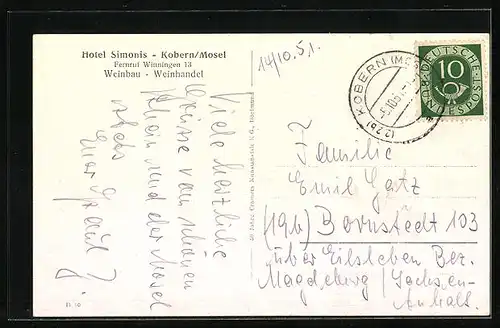 Hotel Simonis - Kobern/Mosel
Fernruf Winningen 13
Weinbau - Weinhandel
14/10.51.
(22b) KOBERN (MOSEL)
DEUTSCHE POST
10
Viele herzliche
Grüsse vom schönen
Rhein und der Mosel
stets
Euer
Familie
Emil Gatz
(19b) Bornstedt 103
über Eilsleben Bez.
Magdeburg / Sachsen-
Anhalt.